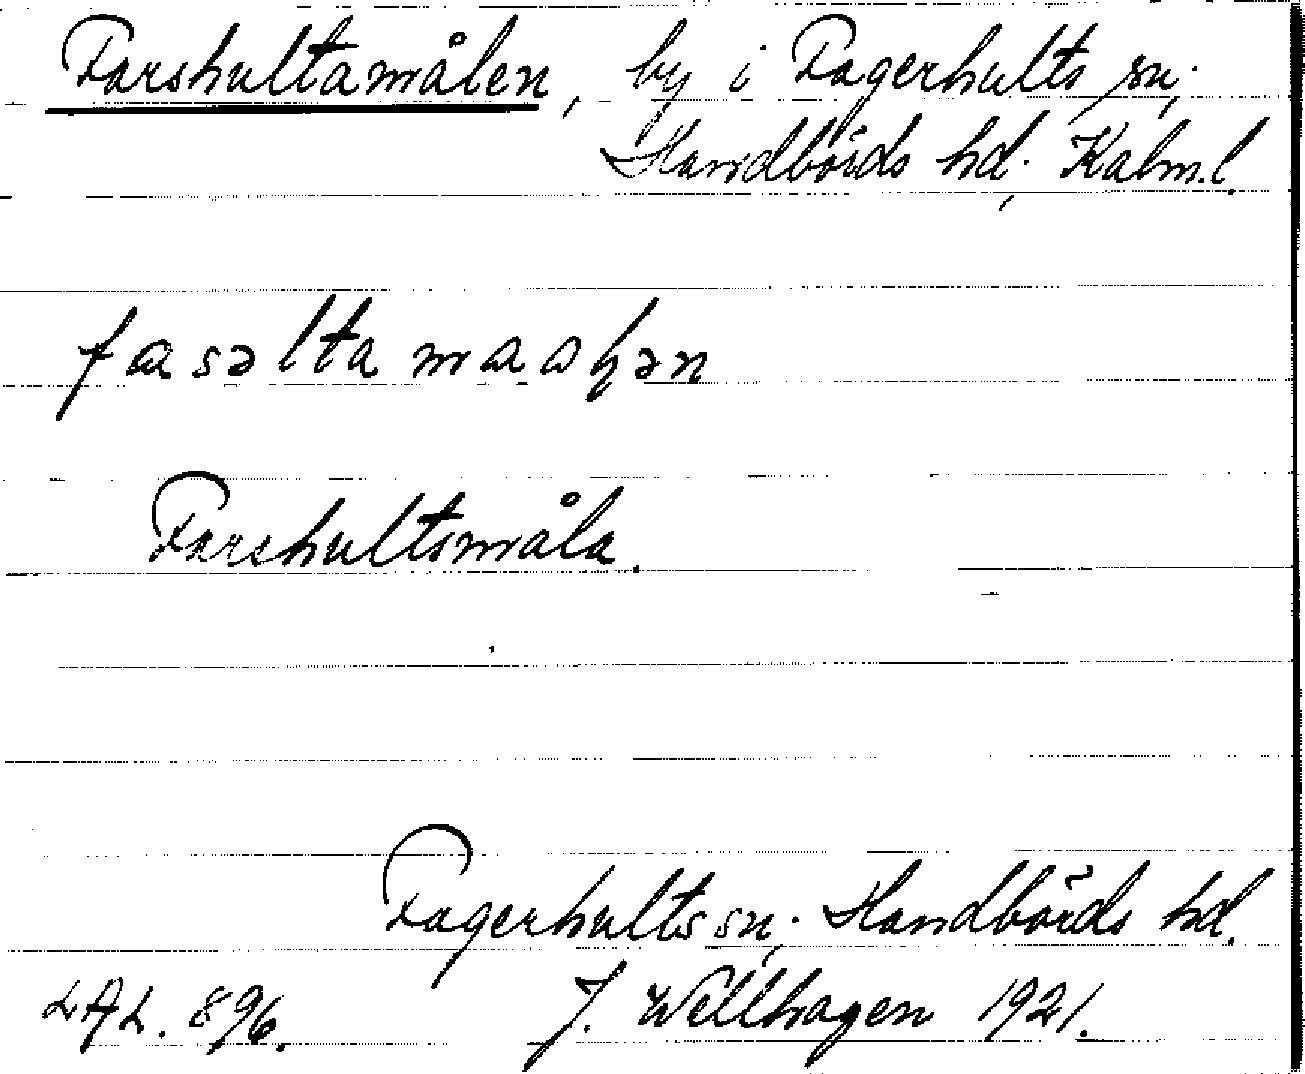 Farshultamålen, by i Fagerhults sn;
Handbörds hd; Kalm.l.
fasəltamaaɫən
Farshultsmåla.
Fagerhults sn; Handbörds hd.
LAL. 896. J. Wellhagen 1921.